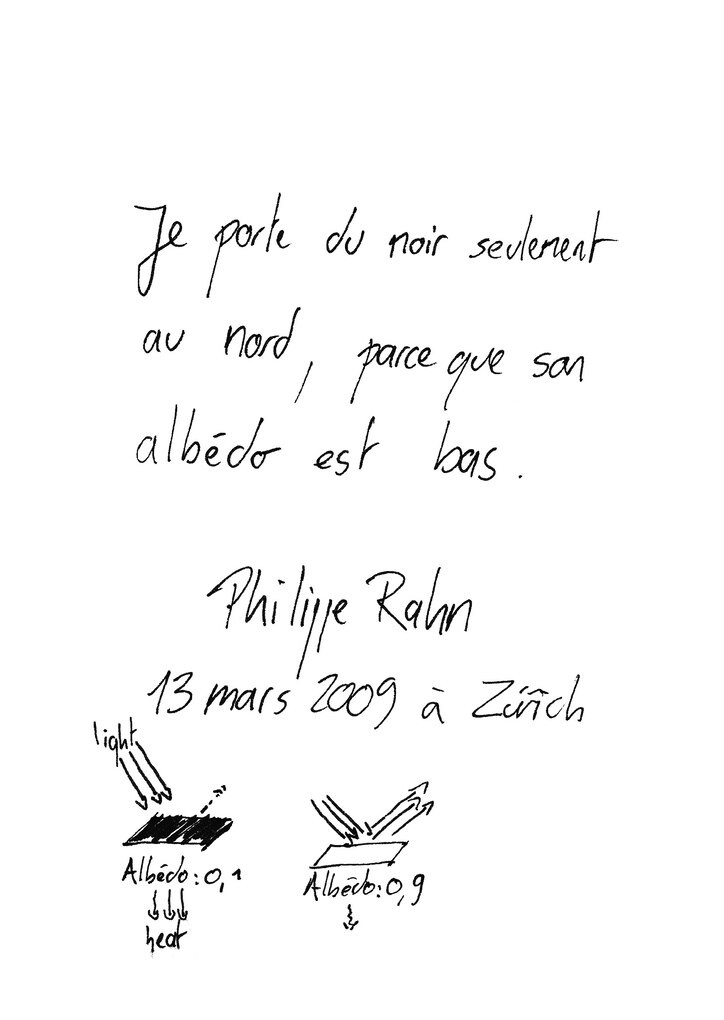 Je porte du noir seulement
au nord, parce que son
albédo est bas.
Philippe Rahm
13 mars 2009 à Zürich
light
Albédo: 0,1
heat
Albédo: 0,9